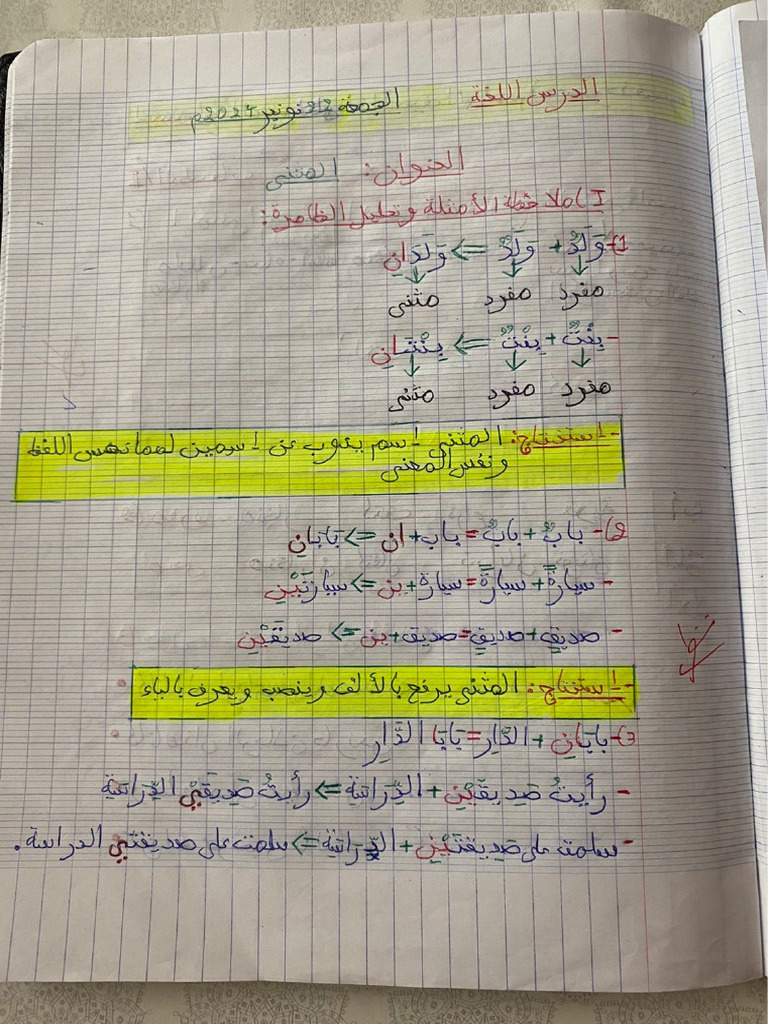 الدرس اللغة الجمعة 22 نونبر 2024م
العنوان: المثنى
I) ملاحظة الأمثلة وتحليل الظاهرة:
1- وَلَدٌ + وَلَدٌ <= وَلَدَانِ
مفرد مفرد مثنى
- بِنْتٌ + بِنْتٌ <= بِنْتَانِ
مفرد مفرد مثنى
- إستنتاج: المثنى إسم ينوب عن إسمين لهما نفس اللفظ
ونفس المعنى
2- بابٌ + بابٌ = باب + ان <= بَابَانِ
- سيارةً + سيارةً = سيارة + ين <= سيارَتَيْنِ
- صديقٍ + صديقٍ = صديق + ين <= صديقَيْنِ
- إستنتاج: المثنى يرفع بالألف وينصب ويعرف بالياء
3- بابَانِ + الدَّار = بَابَا الدَّارِ
- رأيتُ صَدِيقَيْنِ + الدِّرَاسَة <= رأيتُ صَدِيقَيْ الدِّرَاسَة
- سلمت على صَدِيقَتَيْنِ + الدِّرَاسَة <= سلمت على صديقتَيْ الدراسة.